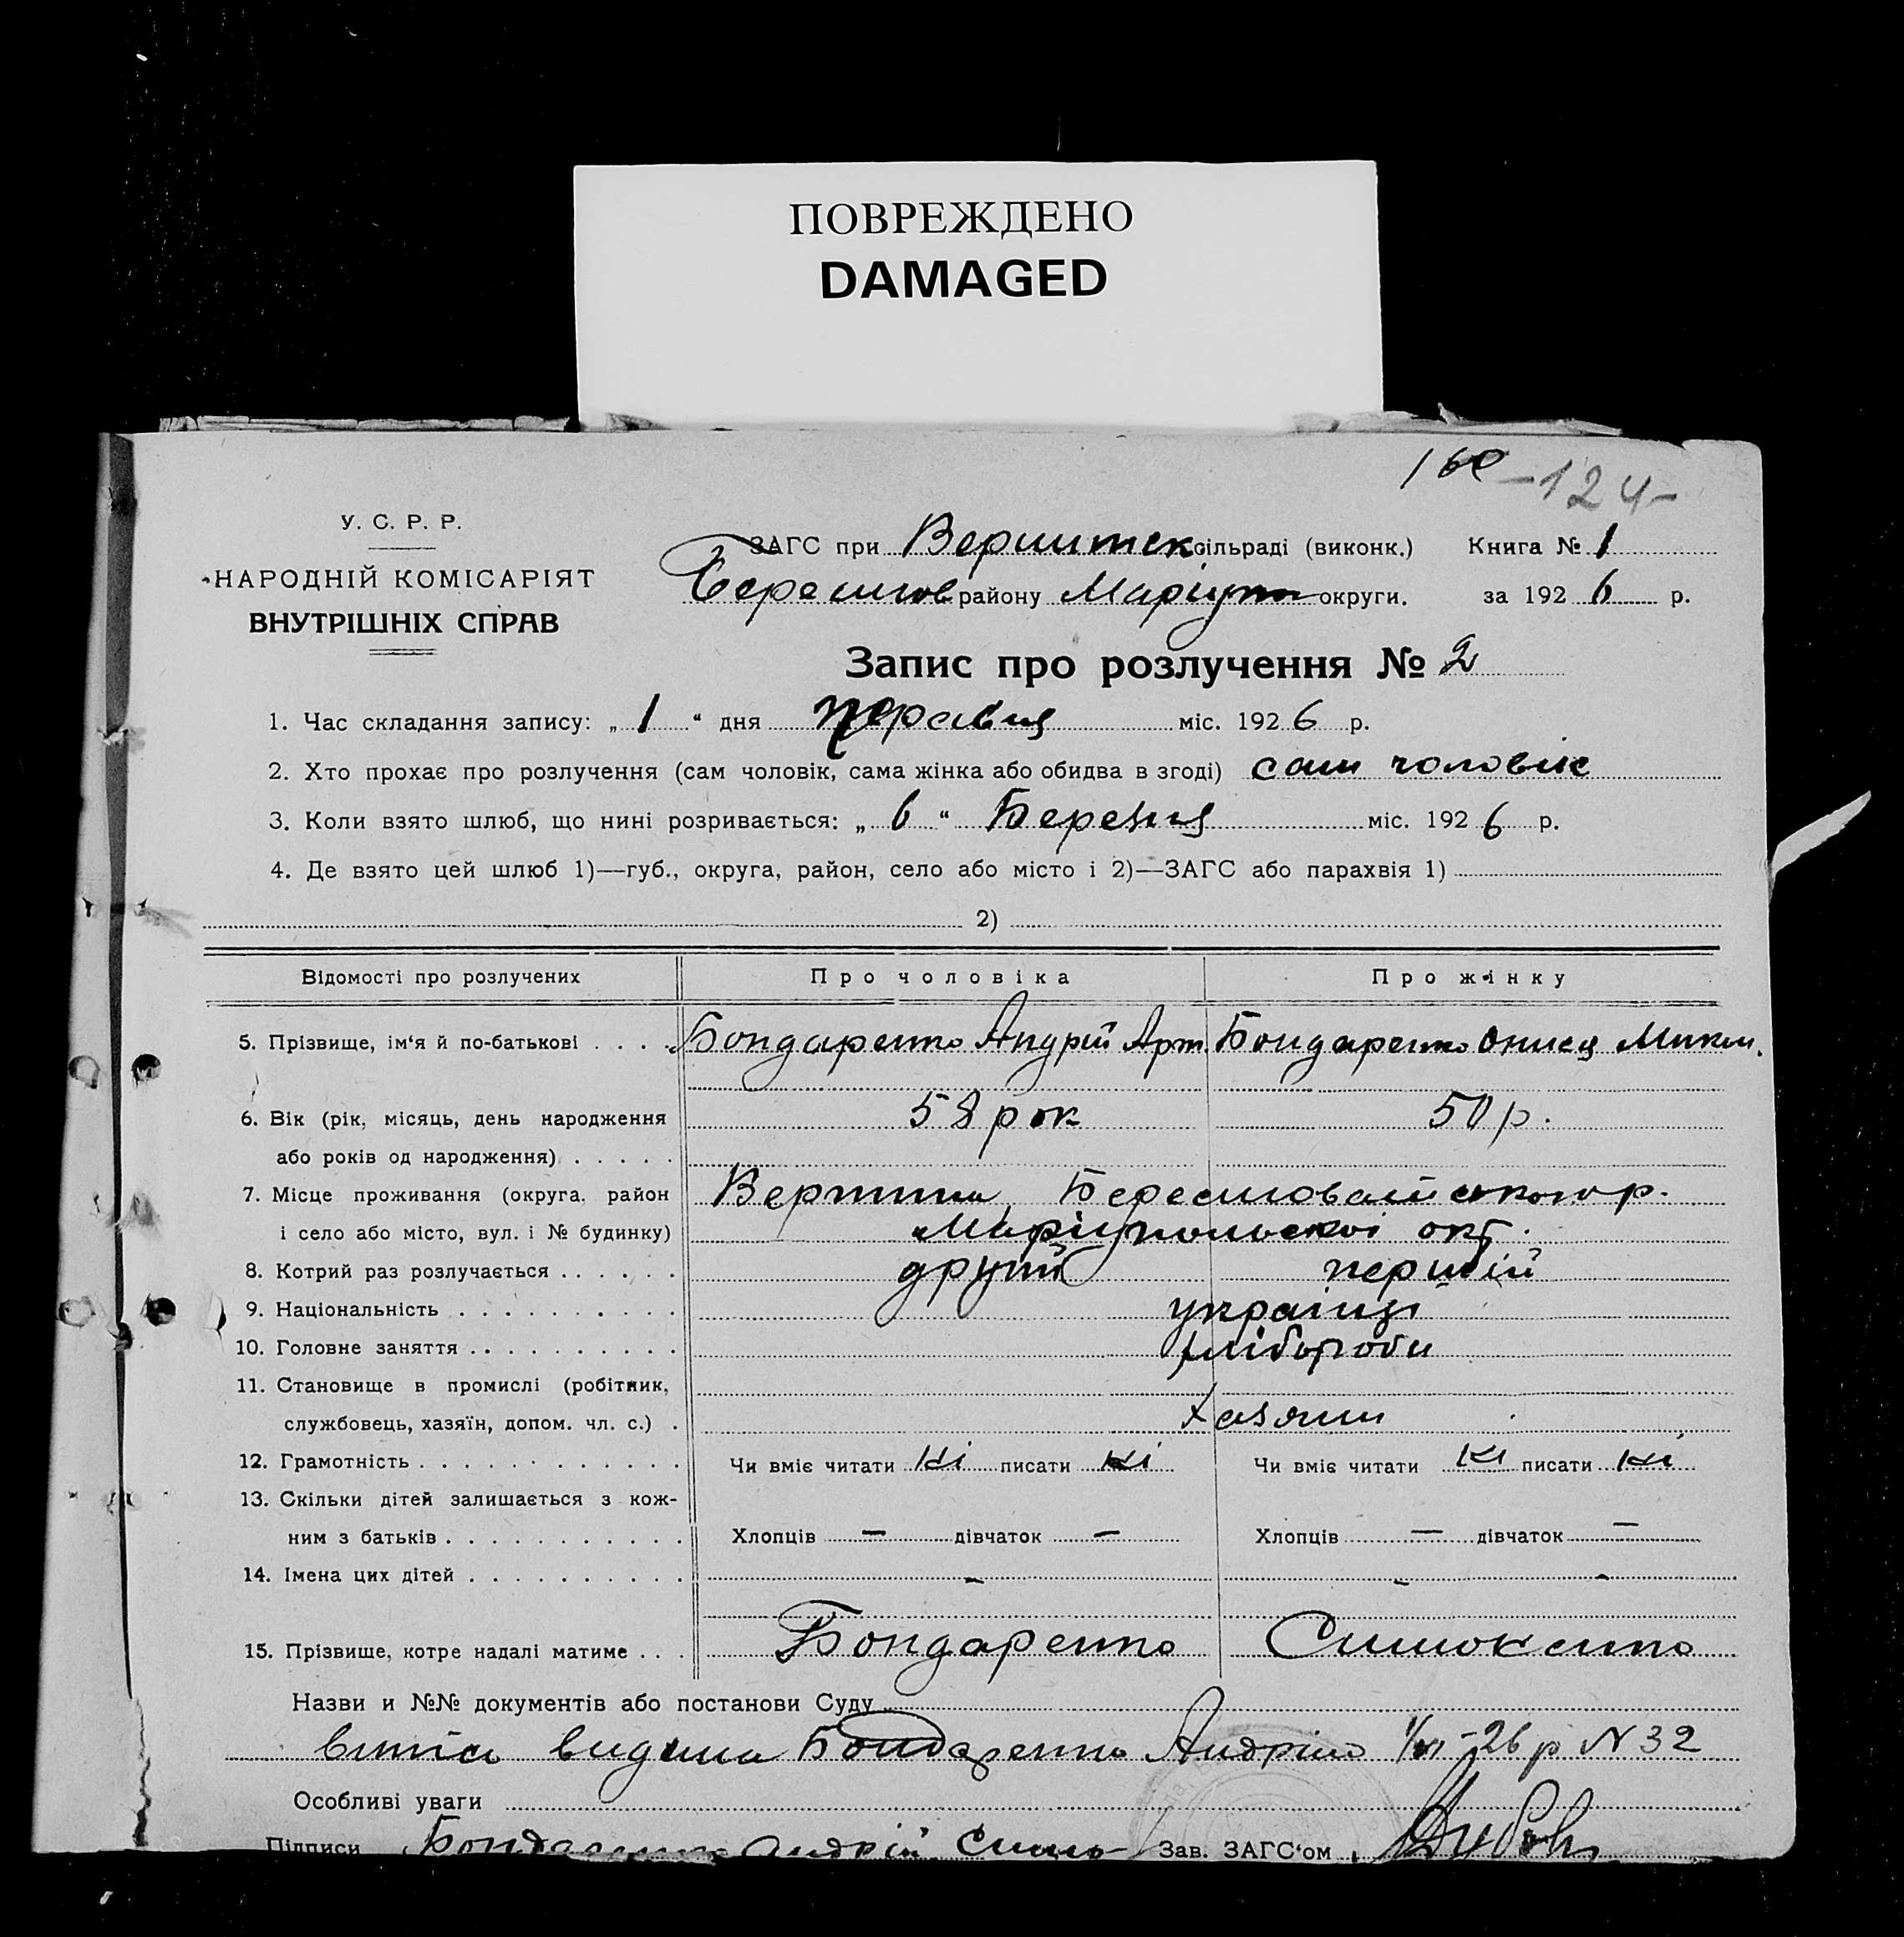 ПОВРЕЖДЕНО
DAMAGED
160 -124-
У. С. Р. Р.
НАРОДНІЙ КОМІСАРІЯТ
ВНУТРІШНІХ СПРАВ
ЗАГС при Вершинск. сільраді (виконк.) Книга № 1
району Маріуп округи. за 192 6 р.
Запис про розлучення № 2
1. Час складання запису: „ 1 “ дня міс. 192 6 р.
2. Хто прохає про розлучення (сам чоловік, сама жінка або обидва в згоді) сам чоловік
3. Коли взято шлюб, що нині розривається: „ 6 “ Березня міс. 192 6 р.
4. Де взято цей шлюб 1)—губ., округа, район, село або місто і 2)—ЗАГС або парахвія 1)
2)
Відомості про розлучених Про чоловіка Про жінку
5. Прізвище, ім‘я й по-батькові . . . . Бондаренко Андрій Арт. Бондаренко Микол.
6. Вік (рік, місяць, день народження 58 рок 50 р.
або років од народження) . . . . .
7. Місце проживання (округа, район р.
і село або місто, вул. і № будинку) Маріупольскоі окг.
8. Котрий раз розлучається . . . . . . другий першій
9. Національність . . . . . . . . . . українці
10. Головне заняття . . . . . . . . . . хлібороби
11. Становище в промислі (робітник,
службовець, хазяїн, допом. чл. с.) . хазяин
12. Грамотність . . . . . . . . . . . . Чи вміє читати ні писати ні Чи вміє читати ні писати ні
13. Скільки дітей залишається з кож-
ним з батьків . . . . . . . . . . . Хлопців — дівчаток — Хлопців — дівчаток —
14. Імена цих дітей . . . . . . . . . . - - -
15. Прізвище, котре надалі матиме . . . Бондаренко
Назви и №№ документів або постанови Суду
видана Бондаренко Андрію 26 р N 32
Особливі уваги
Підписи Бондаренко Андрій Зав. ЗАГС‘ом